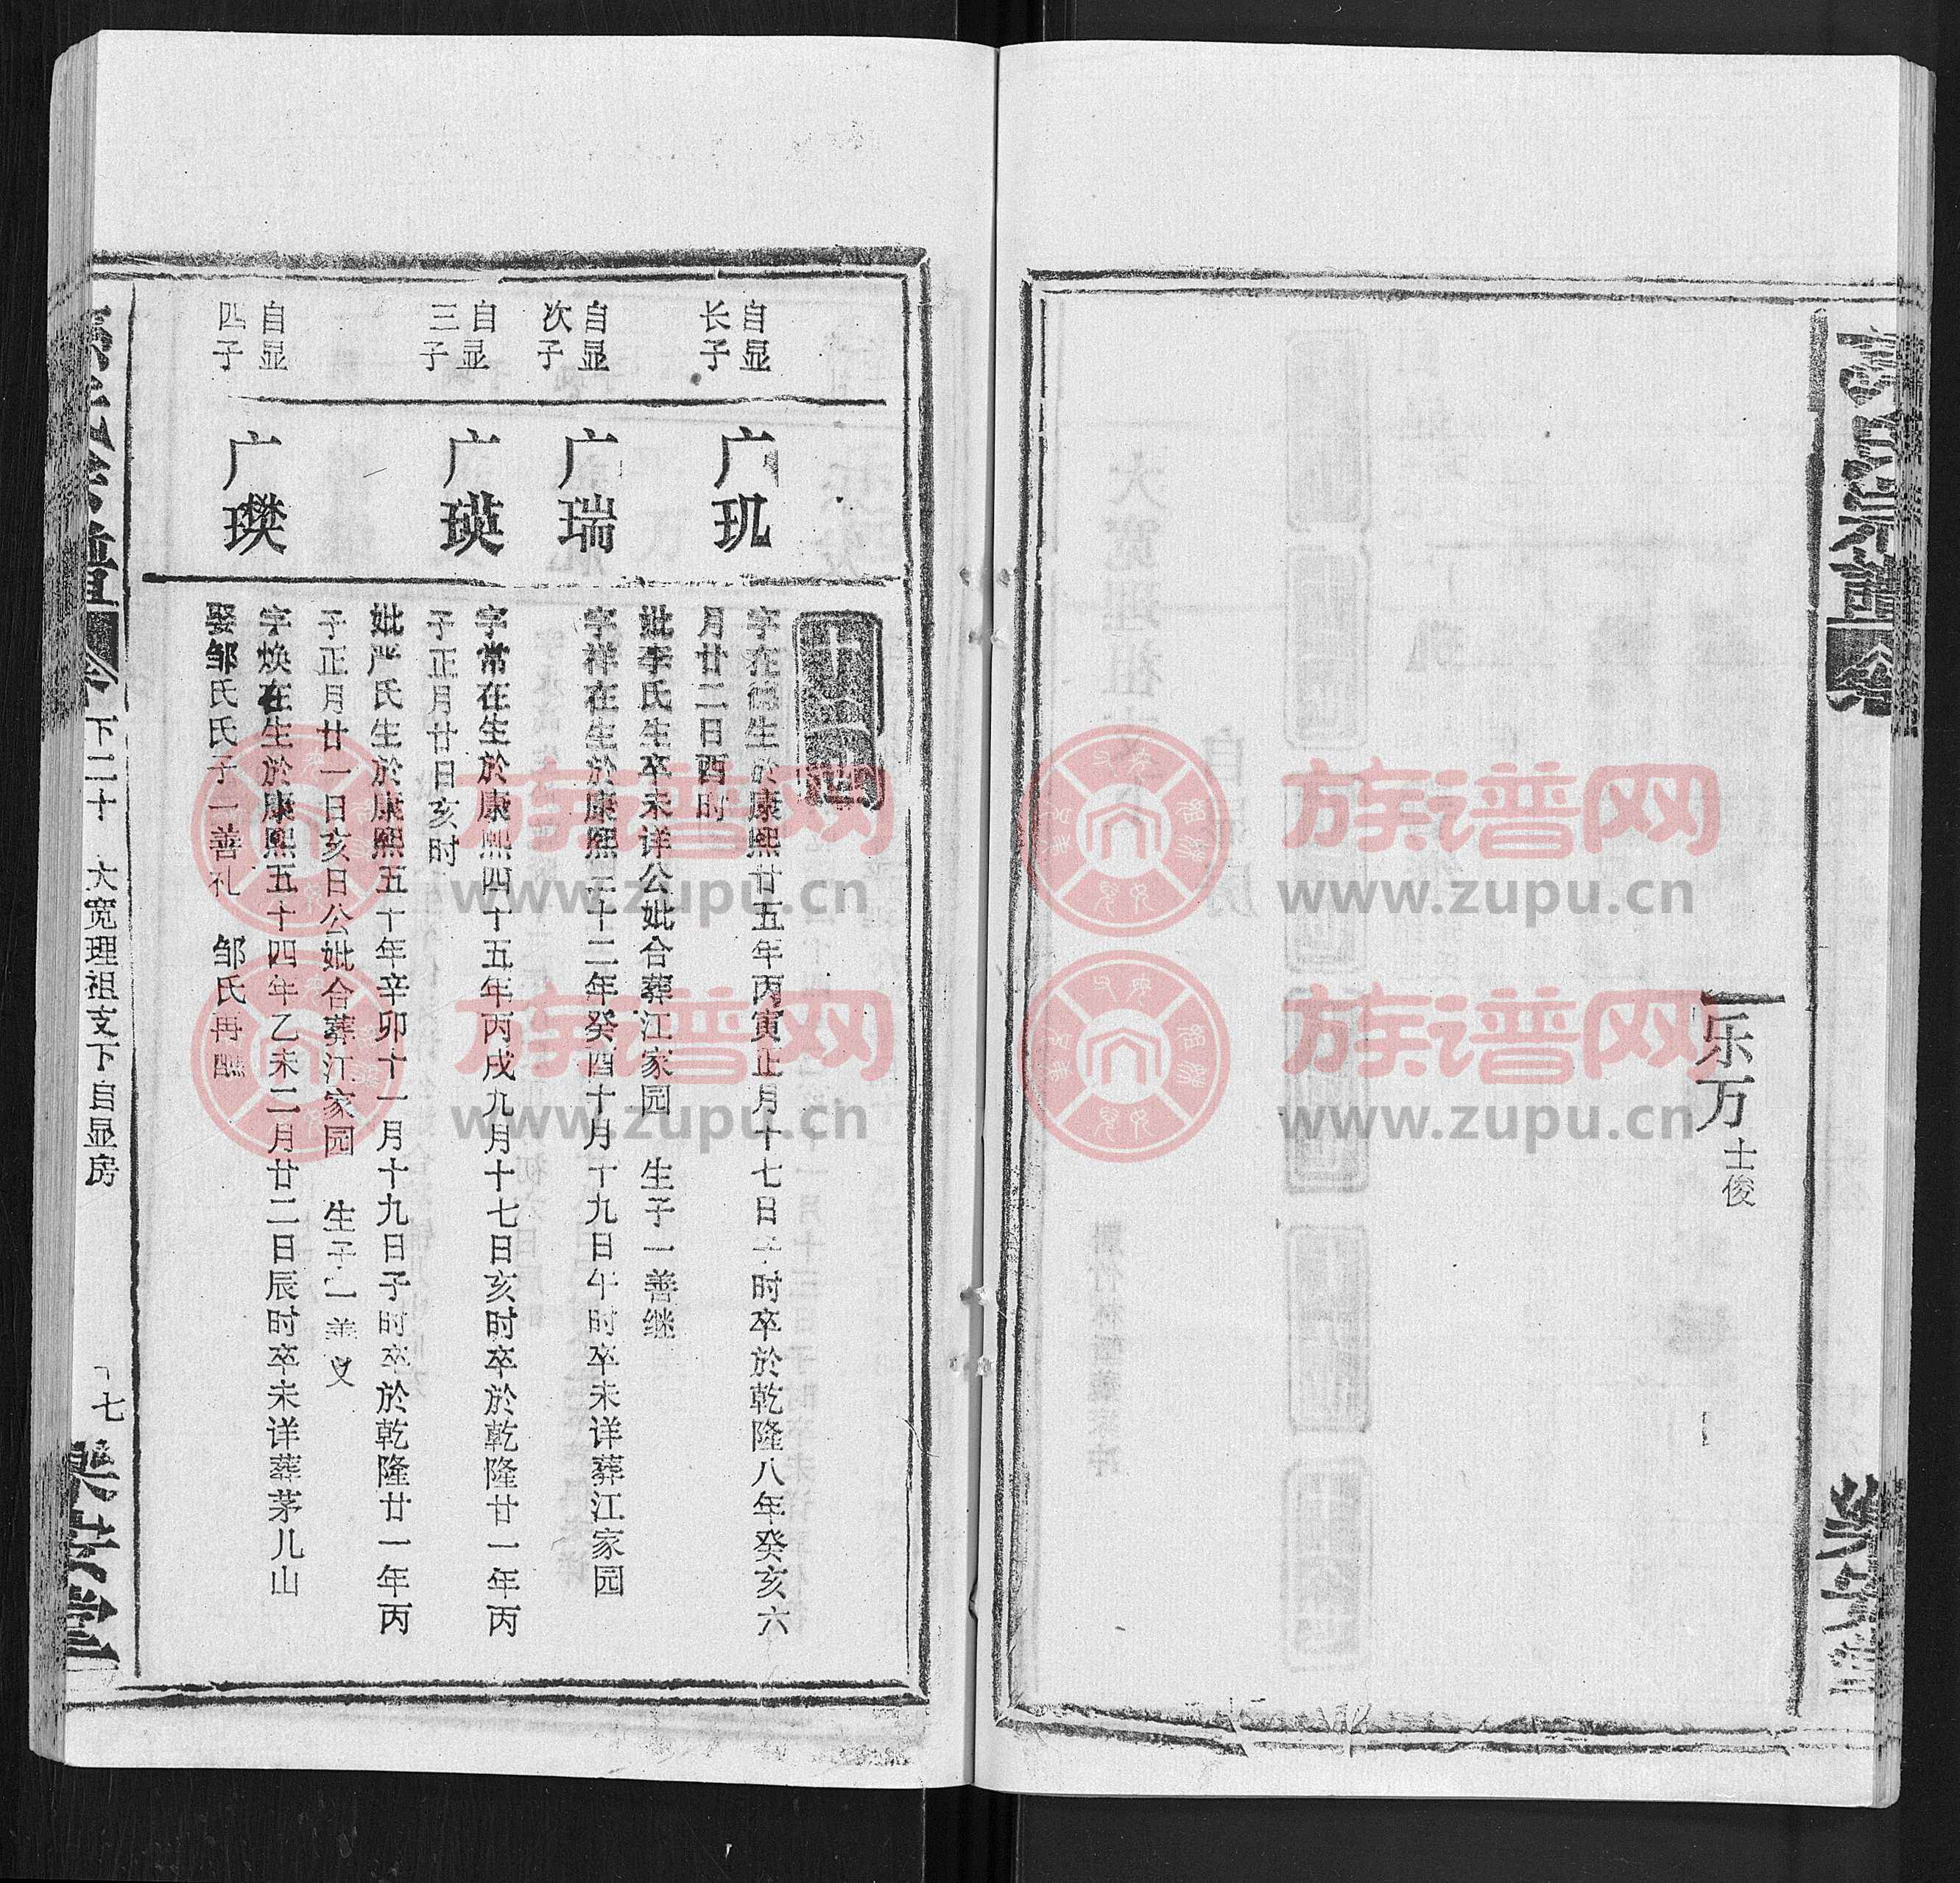 乐万 士俊
十二世
自显长子
广玑
字在德生於康熙廿五年丙寅正月十七日子时卒於乾隆八年癸亥六
月廿二日酉时
妣李氏生卒未详公妣合葬江家园 生子一善继
自显次子
广瑞
字祥在生於康熙三十二年癸酉十月十九日午时卒未详葬江家园
自显三子
广瑛
字常在生於康熙四十五年丙戌九月十七日亥时卒於乾隆廿一年丙
子正月廿日亥时
妣严氏生於康熙五十年辛卯十一月十九日子时卒於乾隆廿一年丙
子正月廿一日亥日公妣合葬江家园 生子一善义
自显四子
广璞
字焕在生於康熙五十四年乙未二月廿二日辰时卒未详葬茅儿山
娶邹氏氏子一善礼 邹氏再醮
下二十 大宽理祖支下自显房
七
族谱网
www.zupu.cn
族谱网
www.zupu.cn
族谱网
www.zupu.cn
族谱网
www.zupu.cn